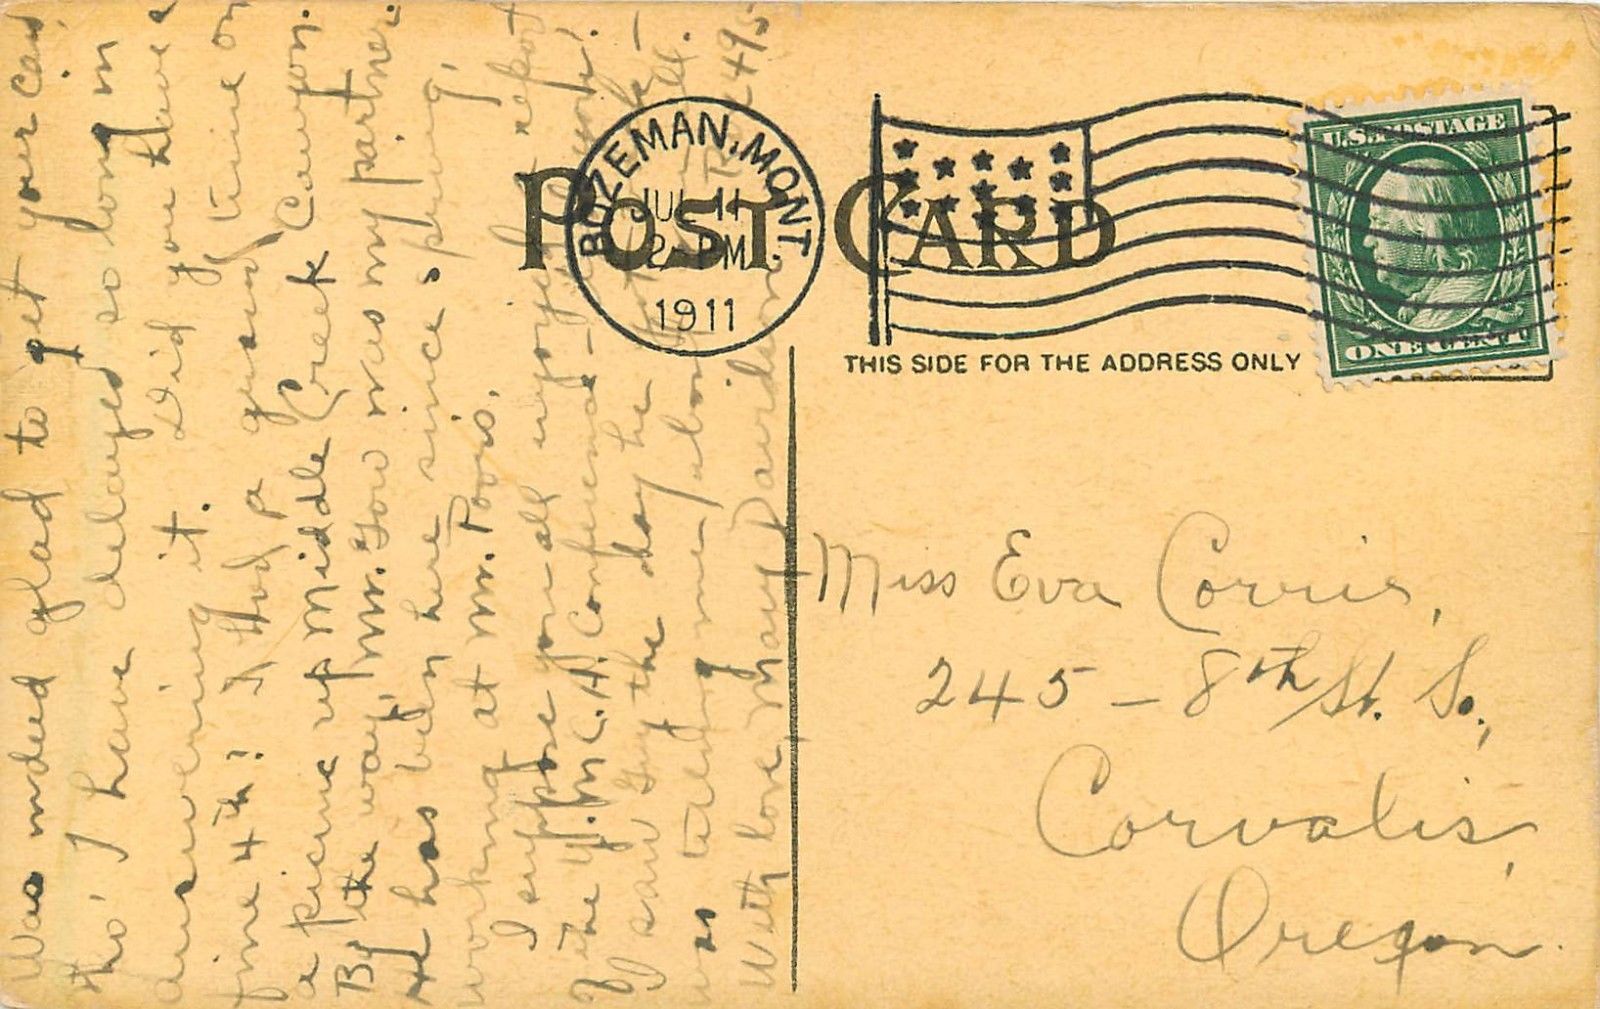 Was indeed glad to get your card
tho' I have delayed so long in
answering it. Did you have a
fine 4th? I had a grand time on
a picnic up Middle Creek Canyon.
By the way, Mr. Gow was my partner.
He has been here since spring,
working at Mr.
I suppose you all enjoyed report
of the Y.M.C.A. Conference
I saw Guy the day he got back
was telling me about
With love, Mary Davidson
POST CARD
BOZEMAN, MONT
JUL 11
2 - PM
1911
U.S. POSTAGE
ONE CENT
THIS SIDE FOR THE ADDRESS ONLY
Miss Eva Corrie,
245 - 8th St. So.,
Corvalis,
Oregon.